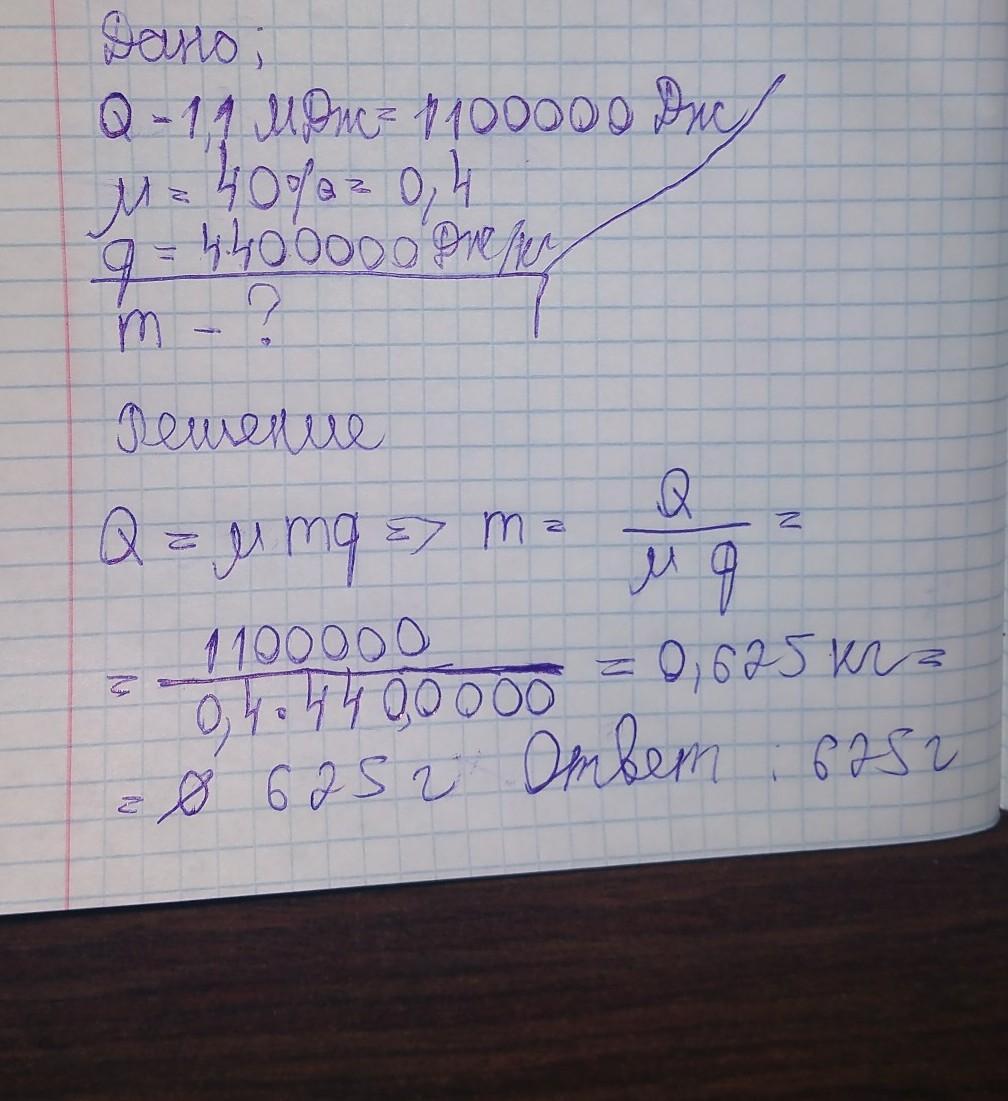 Дано;
Q - 1,1 МДж = 1100000 Дж
μ = 40% = 0,4
q = 4400000 Дж/кг
m - ?
Решение
Q = μ m q => m = Q / μ q =
= 1100000 / 0,4 • 4400000 = 0,625 кг =
= 625 г Ответ : 625 г